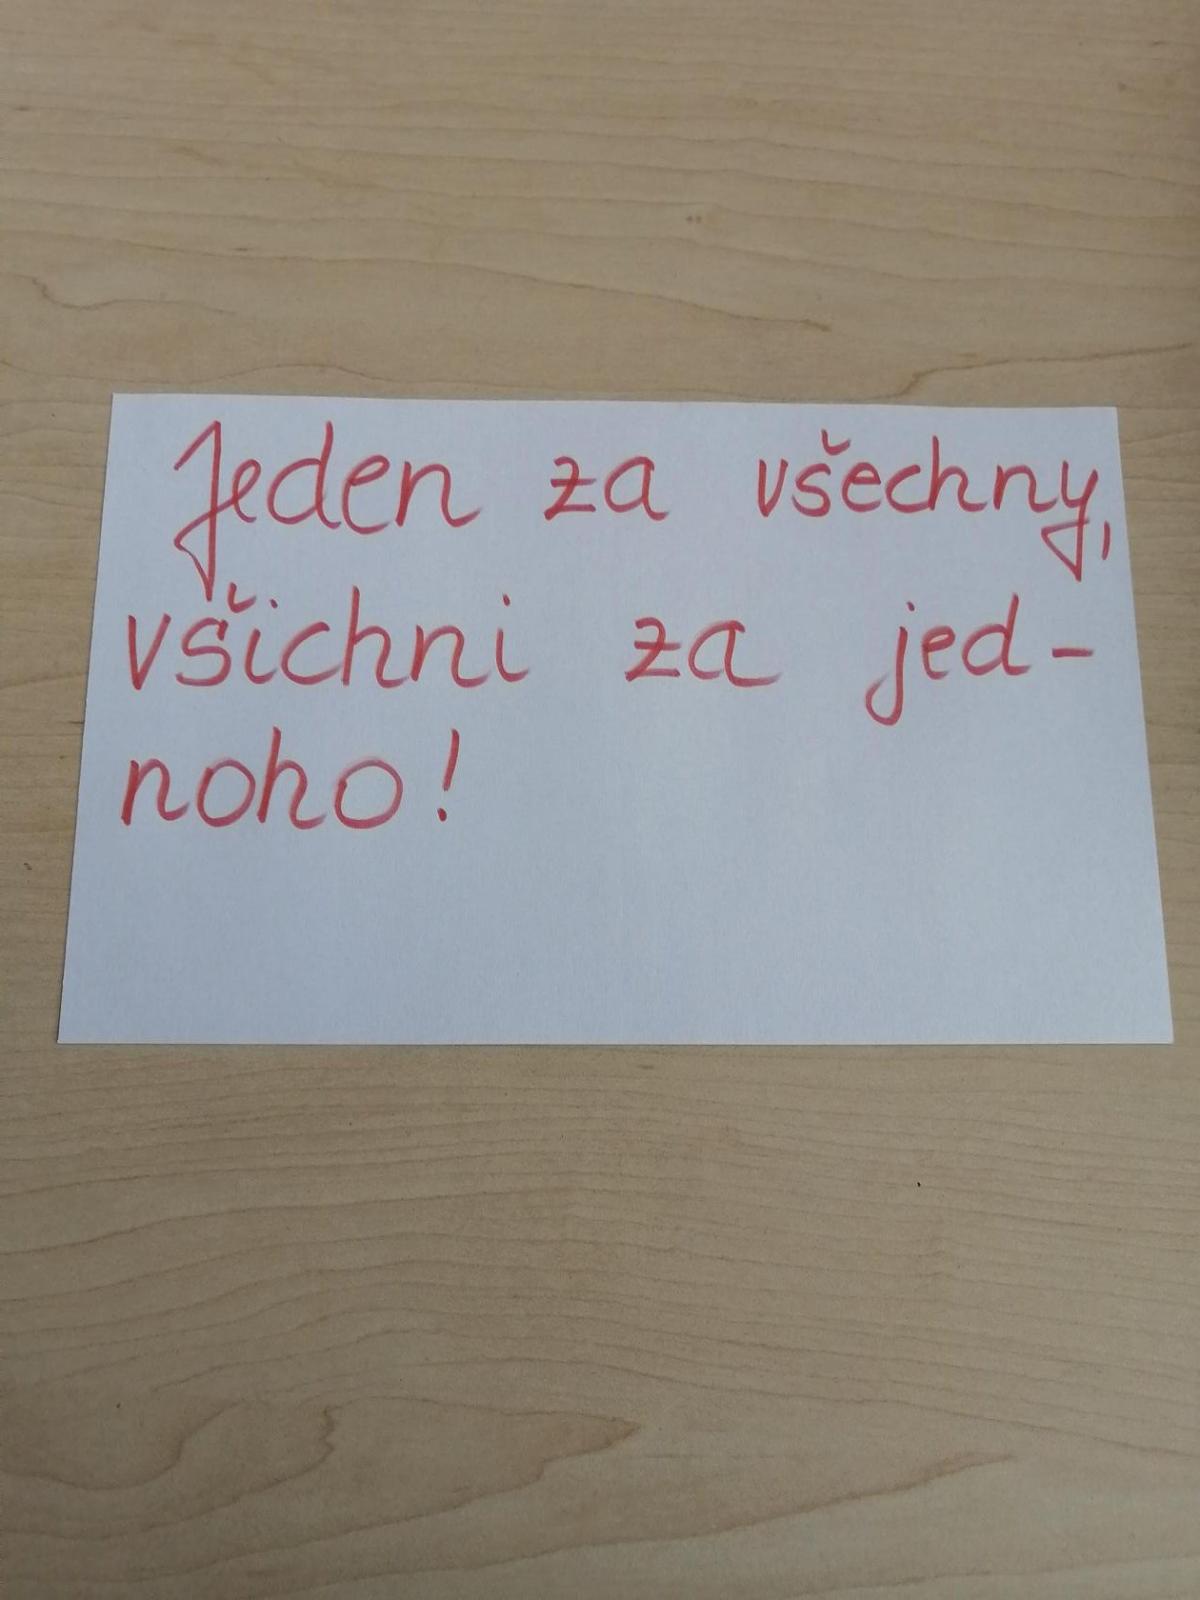 Jeden za všechny,
všichni za jed-
noho!